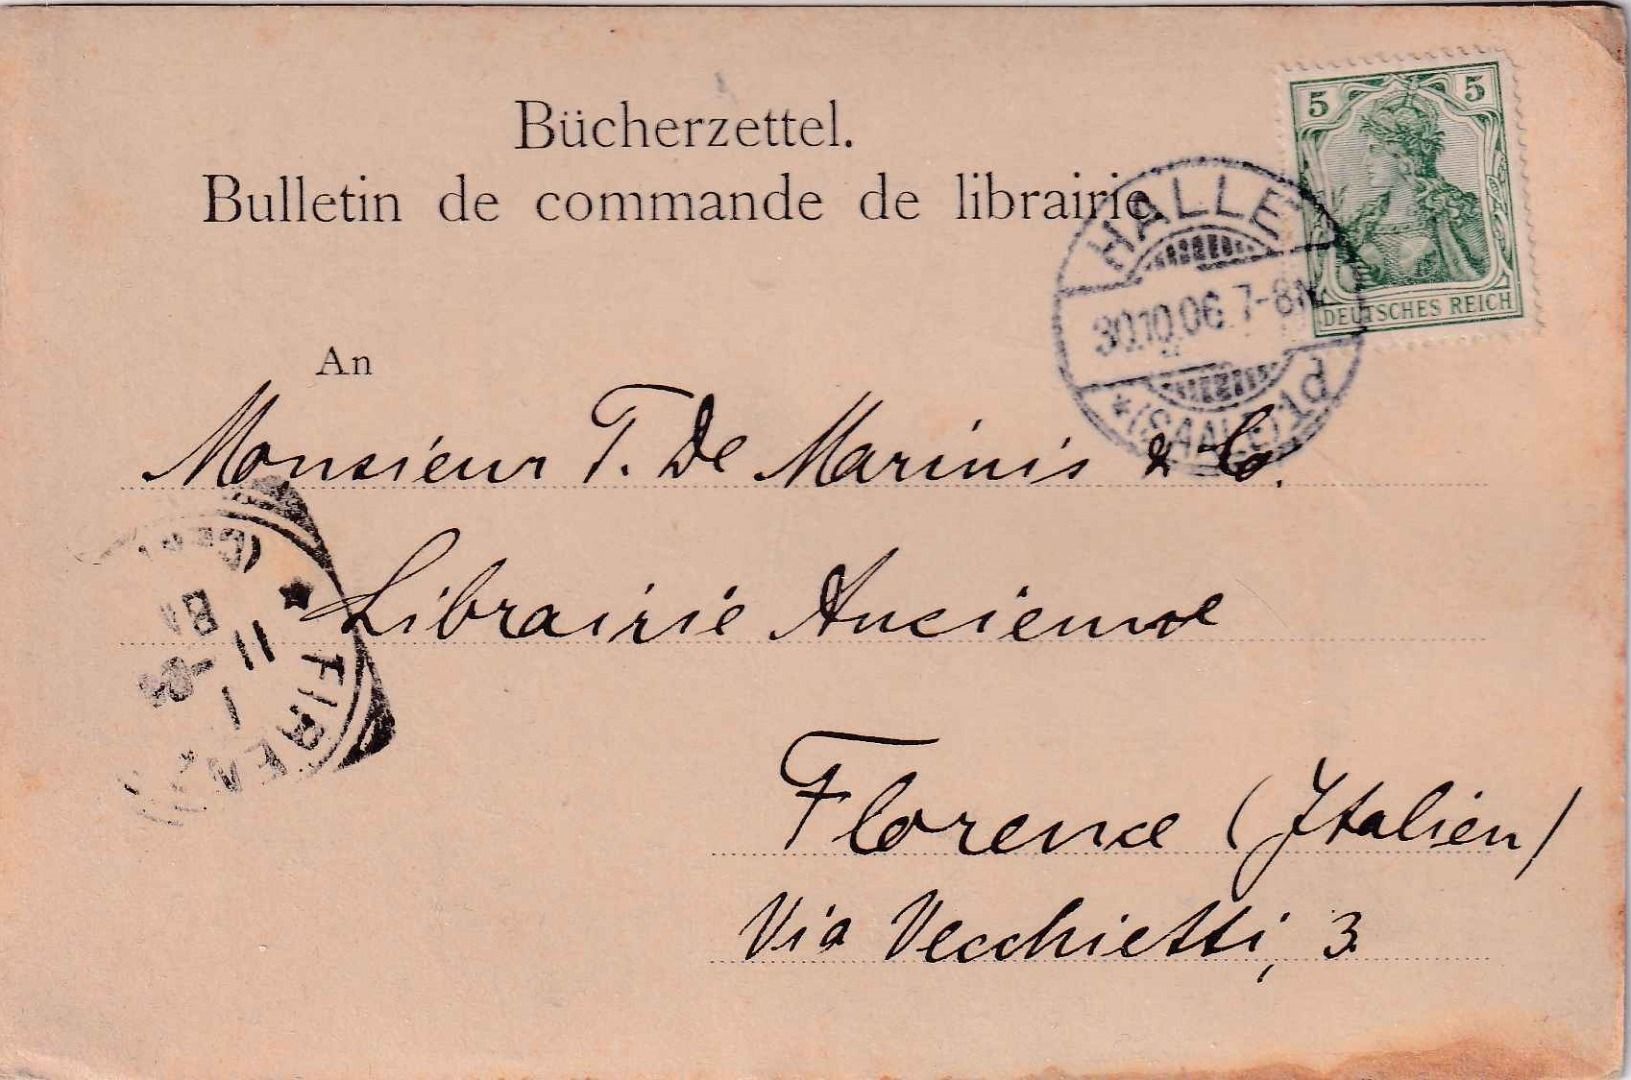 Bücherzettel.
Bulletin de commande de librairie.
5 5
DEUTSCHES REICH
HALLE
30.10.06. 7-8N
* (SAALE) 1d
An
Monsieur T. De Marinis & Co.
Librairie Ancienne
Florence (Italien)
Via Vecchietti, 3.
FIRENZ
11